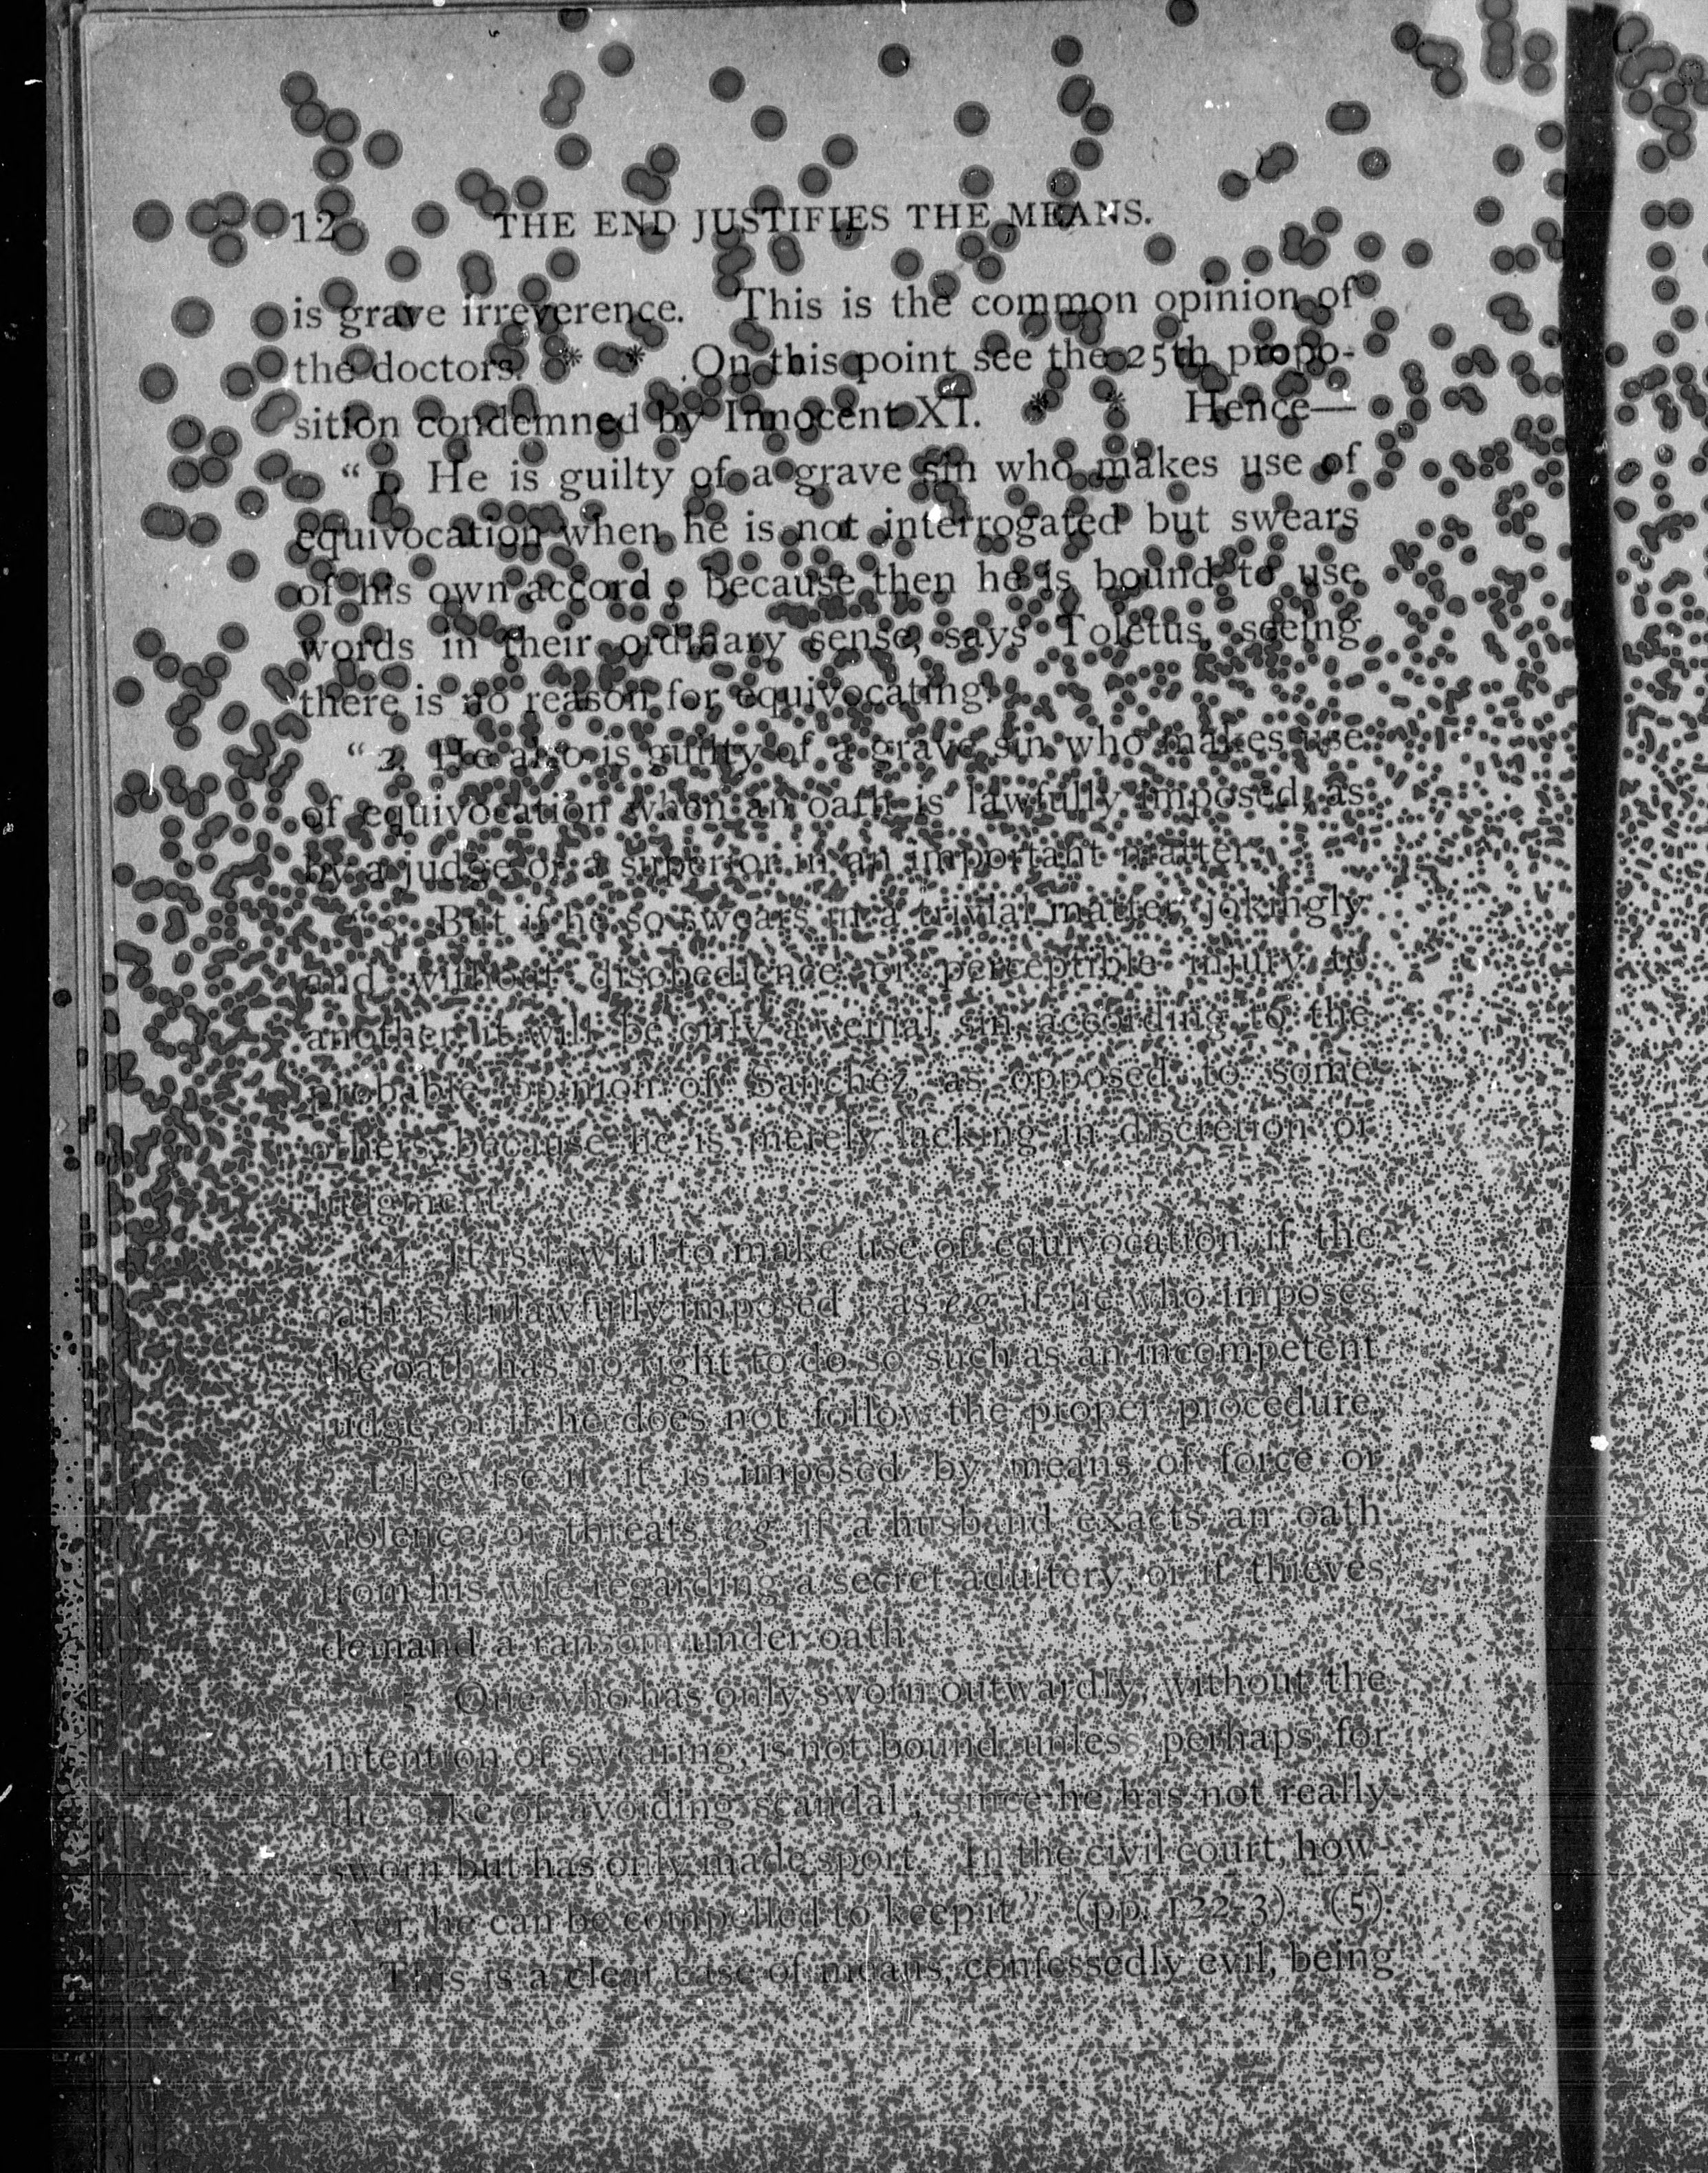 12 THE END JUSTIFIES THE MEANS.
is grave irreverence. This is the common opinion of
the doctors. * * On this point see the 25th propo-
sition condemned by Innocent XI. * * Hence—
“ 1. He is guilty of a grave sin who makes use of
equivocation when he is not interrogated but swears
of his own accord ; because then he is bound to use
words in their ordinary sense, says Toletus, seeing
there is no reason for equivocating.
“ 2. He also is guilty of a grave sin who makes use
of equivocation when an oath is lawfully imposed, as
by a judge or a superior in an important matter.
“ 3. But if he so swears in a trivial matter, jokingly
and without disobedience or perceptible injury to
another, it will be only a venial sin, according to the
probable opinion of Sanchez, as opposed to some
others, because he is merely lacking in discretion or
judgment.
“ 4. It is lawful to make use of equivocation, if the
oath is unlawfully imposed ; as e.g. if he who imposes
the oath has no right to do so, such as an incompetent
judge, or if he does not follow the proper procedure.
Likewise if it is imposed by means of force or
violence, or threats, e.g. if a husband exacts an oath
from his wife regarding a secret adultery, or if thieves
demand a ransom under oath.
“ 5. One who has only sworn outwardly, without the
intention of swearing, is not bound, unless, perhaps, for
the sake of avoiding scandal ; since he has not really
sworn but has only made sport. In the civil court, how-
ever, he can be compelled to keep it” (pp. 122-3). (5).
This is a clear case of means, confessedly evil, being